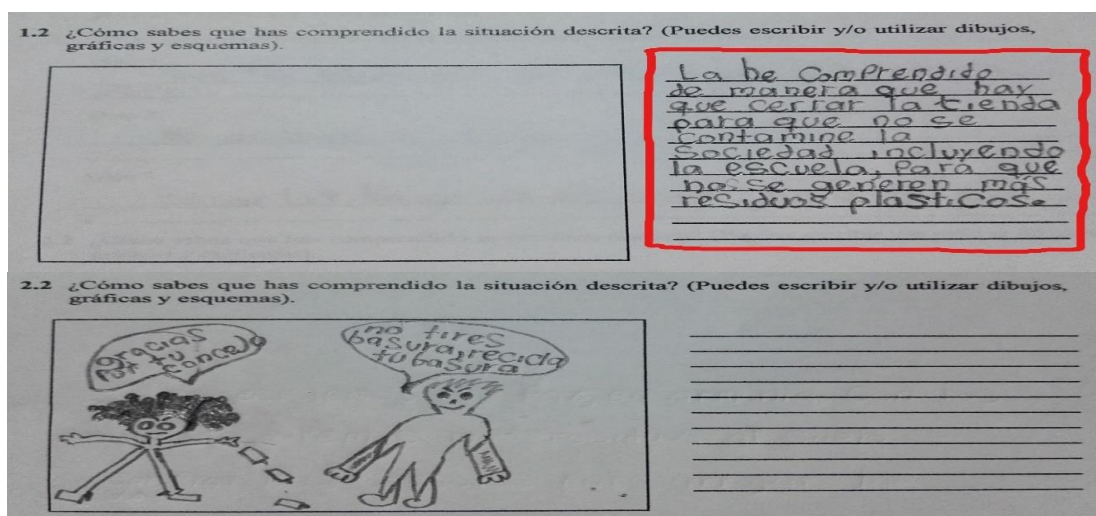 1.2 ¿Cómo sabes que has comprendido la situación descrita? (Puedes escribir y/o utilizar dibujos,
gráficas y esquemas).
La he comprendido
de manera que hay
que cerrar la tienda
para que no se
contamine la
Sociedad incluyendo
la escuela, para que
no se generen más
residuos plasticos.
2.2 ¿Cómo sabes que has comprendido la situación descrita? (Puedes escribir y/o utilizar dibujos,
gráficas y esquemas).
gracias
por tu
concejo
no tires
basura, recicla
tu basura